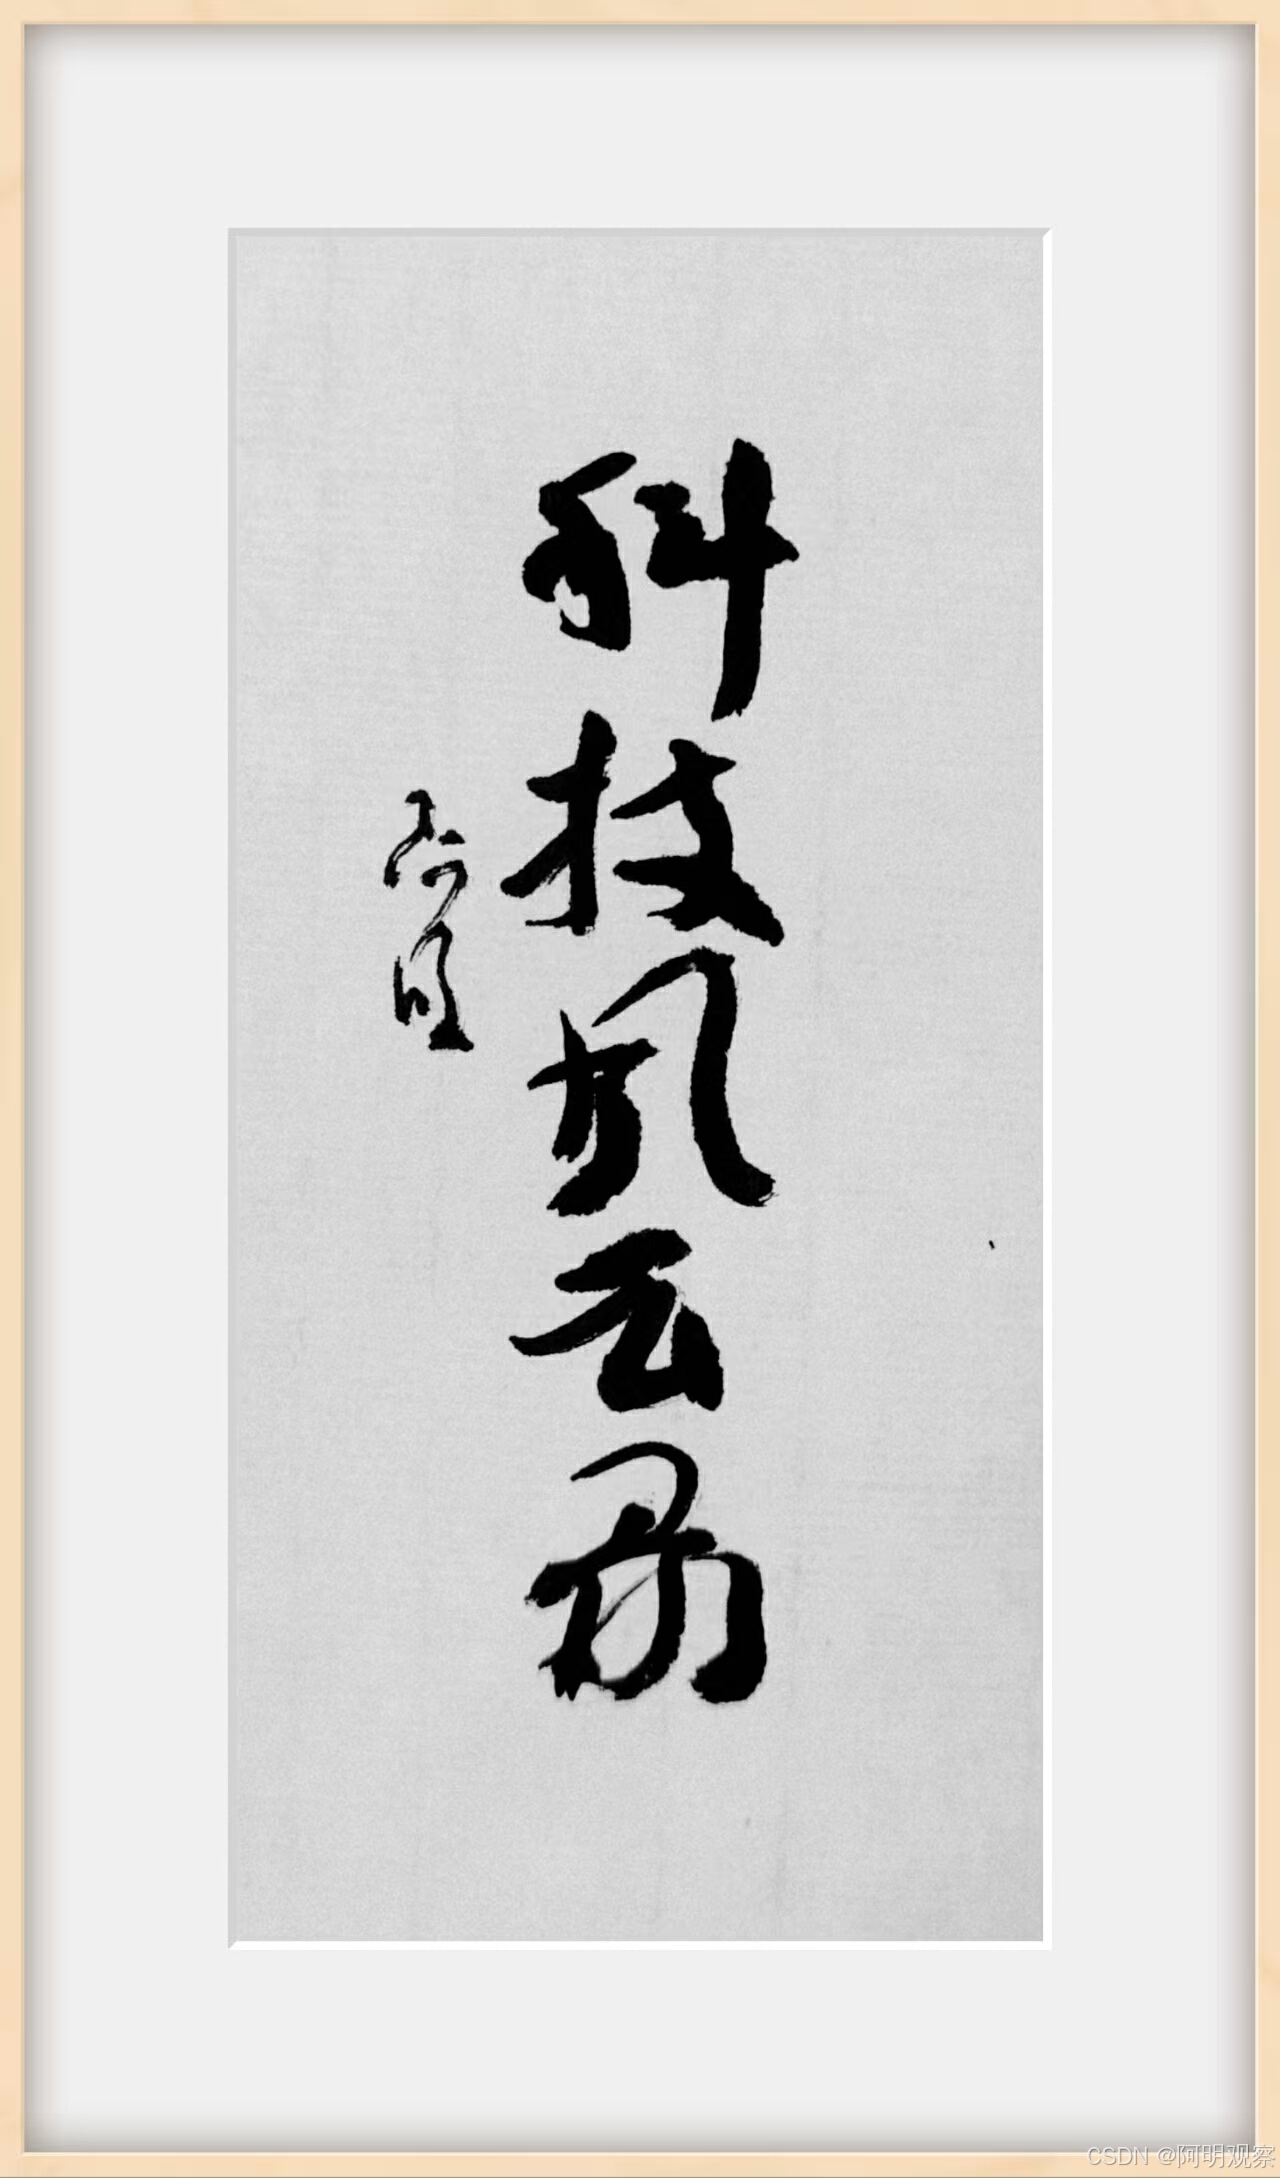 科技风云
阿明
CSDN @阿明观察